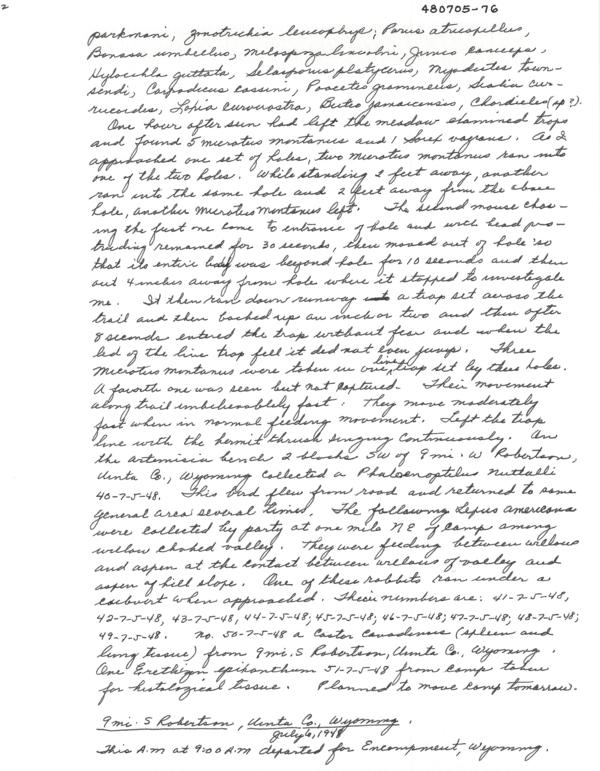 2
480705-76
parkmani, Zonotrichia leucophrys; Parus atricapillus,
Bonasa umbellus, Melospiza lincolni, Junco caniceps,
Hylocichla guttata, Selasporus platycerus, Myadestes town-
sendi, Carpodicus cassini, Pooecetes gramineus, Sialia cur-
rucoides, Loxia curvirostra, Buteo jamaicensis, Chordieles (sp?).
One hour after sun had left the meadow examined traps
and found 5 microtus montanus and 1 Sorex vagrans. As I
approached one set of holes, two microtus montanus ran into
one of the two holes. While standing 2 feet away, another
ran into the same hole and 2 feet away from the above
hole, another microtus montanus left. The second mouse chas-
ing the first one came to entrance of hole and with head pro-
truding remained for 30 seconds, then moved out of hole so
that its entire body was beyond hole for 10 seconds and then
out 4 inches away from hole where it stopped to investigate
me. It then ran down runway a trap set across the
trail and then backed up an inch or two and then after
8 seconds entered the trap without fear and when the
lid of the live trap fell it did not even jump. Three
Microtus montanus were taken in one live trap set by these holes.
A fourth one was seen but not captured. Their movement
along trail unbelievablely fast. They move moderately
fast when in normal feeding movement. Left the trap
line with the hermit thrush singing continuously. On
the artemisia bench 2 blocks SW of 9 mi. W Robertson,
Uinta Co., Wyoming collected a Phalaenoptilus nuttalli
40-7-5-48. This bird flew from road and returned to same
general area several times. The following Lepus americana
were collected by party at one mile NE of camp among
willow choked valley. They were feeding between willows
and aspen at the contact between willows of valley and
aspen of hill slope. One of these rabbits ran under a
culvert when approached. Their numbers are: 41-7-5-48,
42-7-5-48, 43-7-5-48, 44-7-5-48; 45-7-5-48; 46-7-5-48; 47-7-5-48; 48-7-5-48;
49-7-5-48. No. 50-7-5-48 a Castor canadensis (spleen and
lung tissue) from 9 mi. S Robertson, Uinta Co., Wyoming.
One Erethizon epixanthum 51-7-5-48 from camp taken
for histological tissue. Planned to move camp tomorrow.
9 mi. S Robertson, Uinta Co., Wyoming.
July 6, 1948
This A.M at 9:00 A.M departed for Encampment, Wyoming.